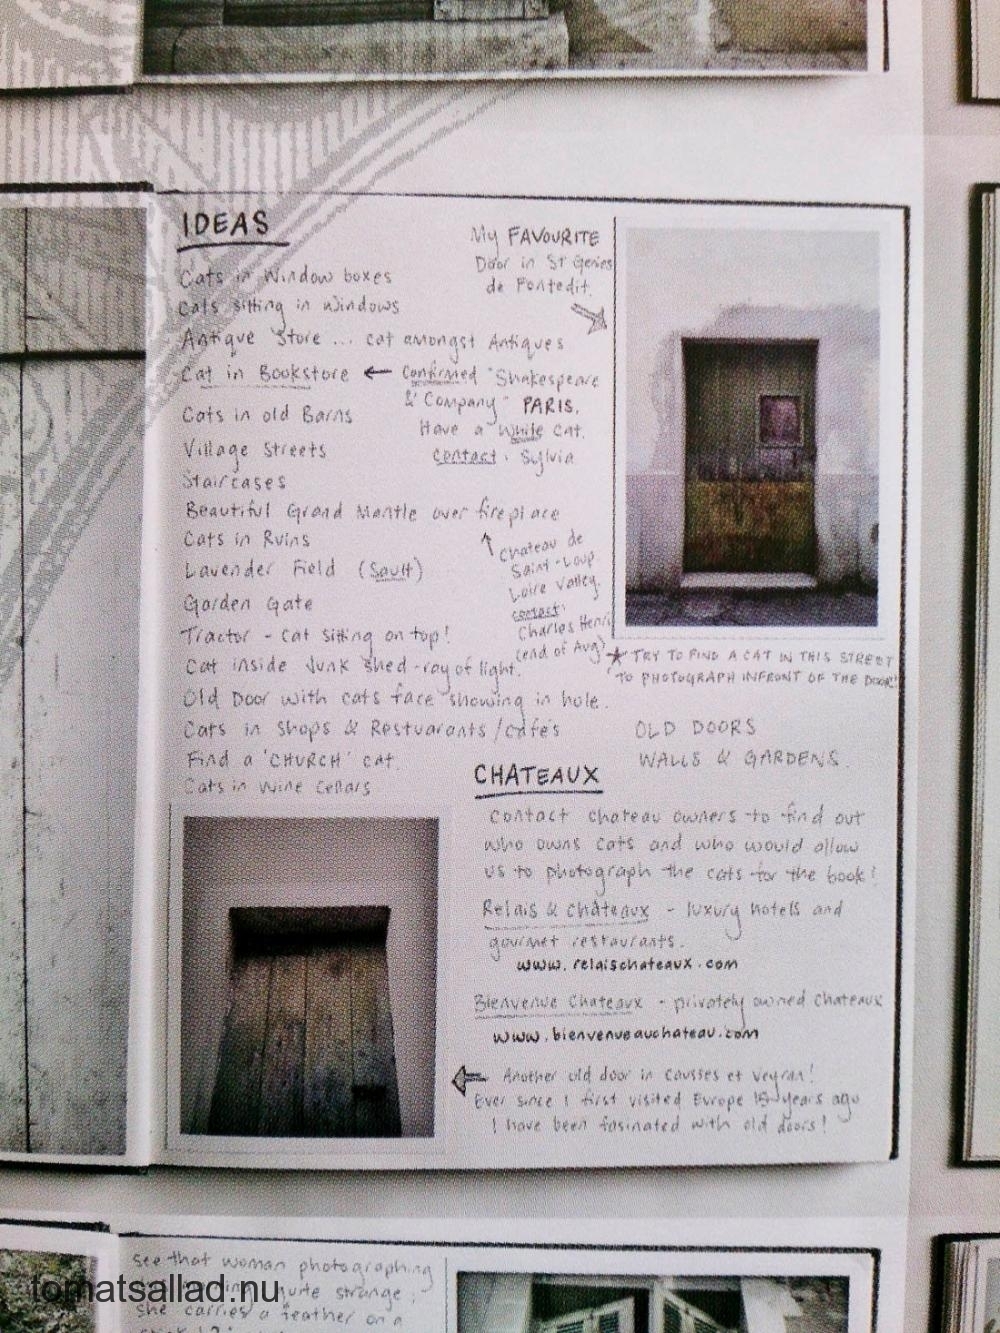 IDEAS
Cats in Window boxes
Cats sitting in windows
Antique Store ... cat amongst Antiques
Cat in Bookstore ←
Cats in old Barns
Village Streets
Staircases
Beautiful Grand Mantle over fireplace
Cats in Ruins
Lavender Field (Sault)
Garden Gate
Tractor - Cat sitting on top!
Cat inside Junk shed - ray of light.
Old Door with cats face showing in hole.
Cats in Shops & Restuarants/cafés
Find a 'CHURCH' cat.
Cats in Wine Cellars
My FAVOURITE
Door in St Genies
de Fontedit.
Confirmed "Shakespeare
& Company" PARIS.
Have a white cat.
Contact: Sylvia
Chateau de
Saint-Loup
Loire Valley.
contact:
Charles Henri
(end of Aug)
★ TRY TO FIND A CAT IN THIS STREET
TO PHOTOGRAPH INFRONT OF THE DOOR!
OLD DOORS
WALLS & GARDENS.
CHATEAUX
Contact chateau owners to find out
who owns cats and who would allow
us to photograph the cats for the book!
Relais & Châteaux - luxury hotels and
gourmet restaurants.
www.relaischateaux.com
Bienvenue Chateaux - privately owned Chateaux
www.bienvenueauchateau.com
Another old door in Causses et Veyran!
Ever since I first visited Europe 15 years ago
I have been fasinated with old doors!
see that woman photographing
quite strange;
she carries a feather on a
tomatsallad.nu